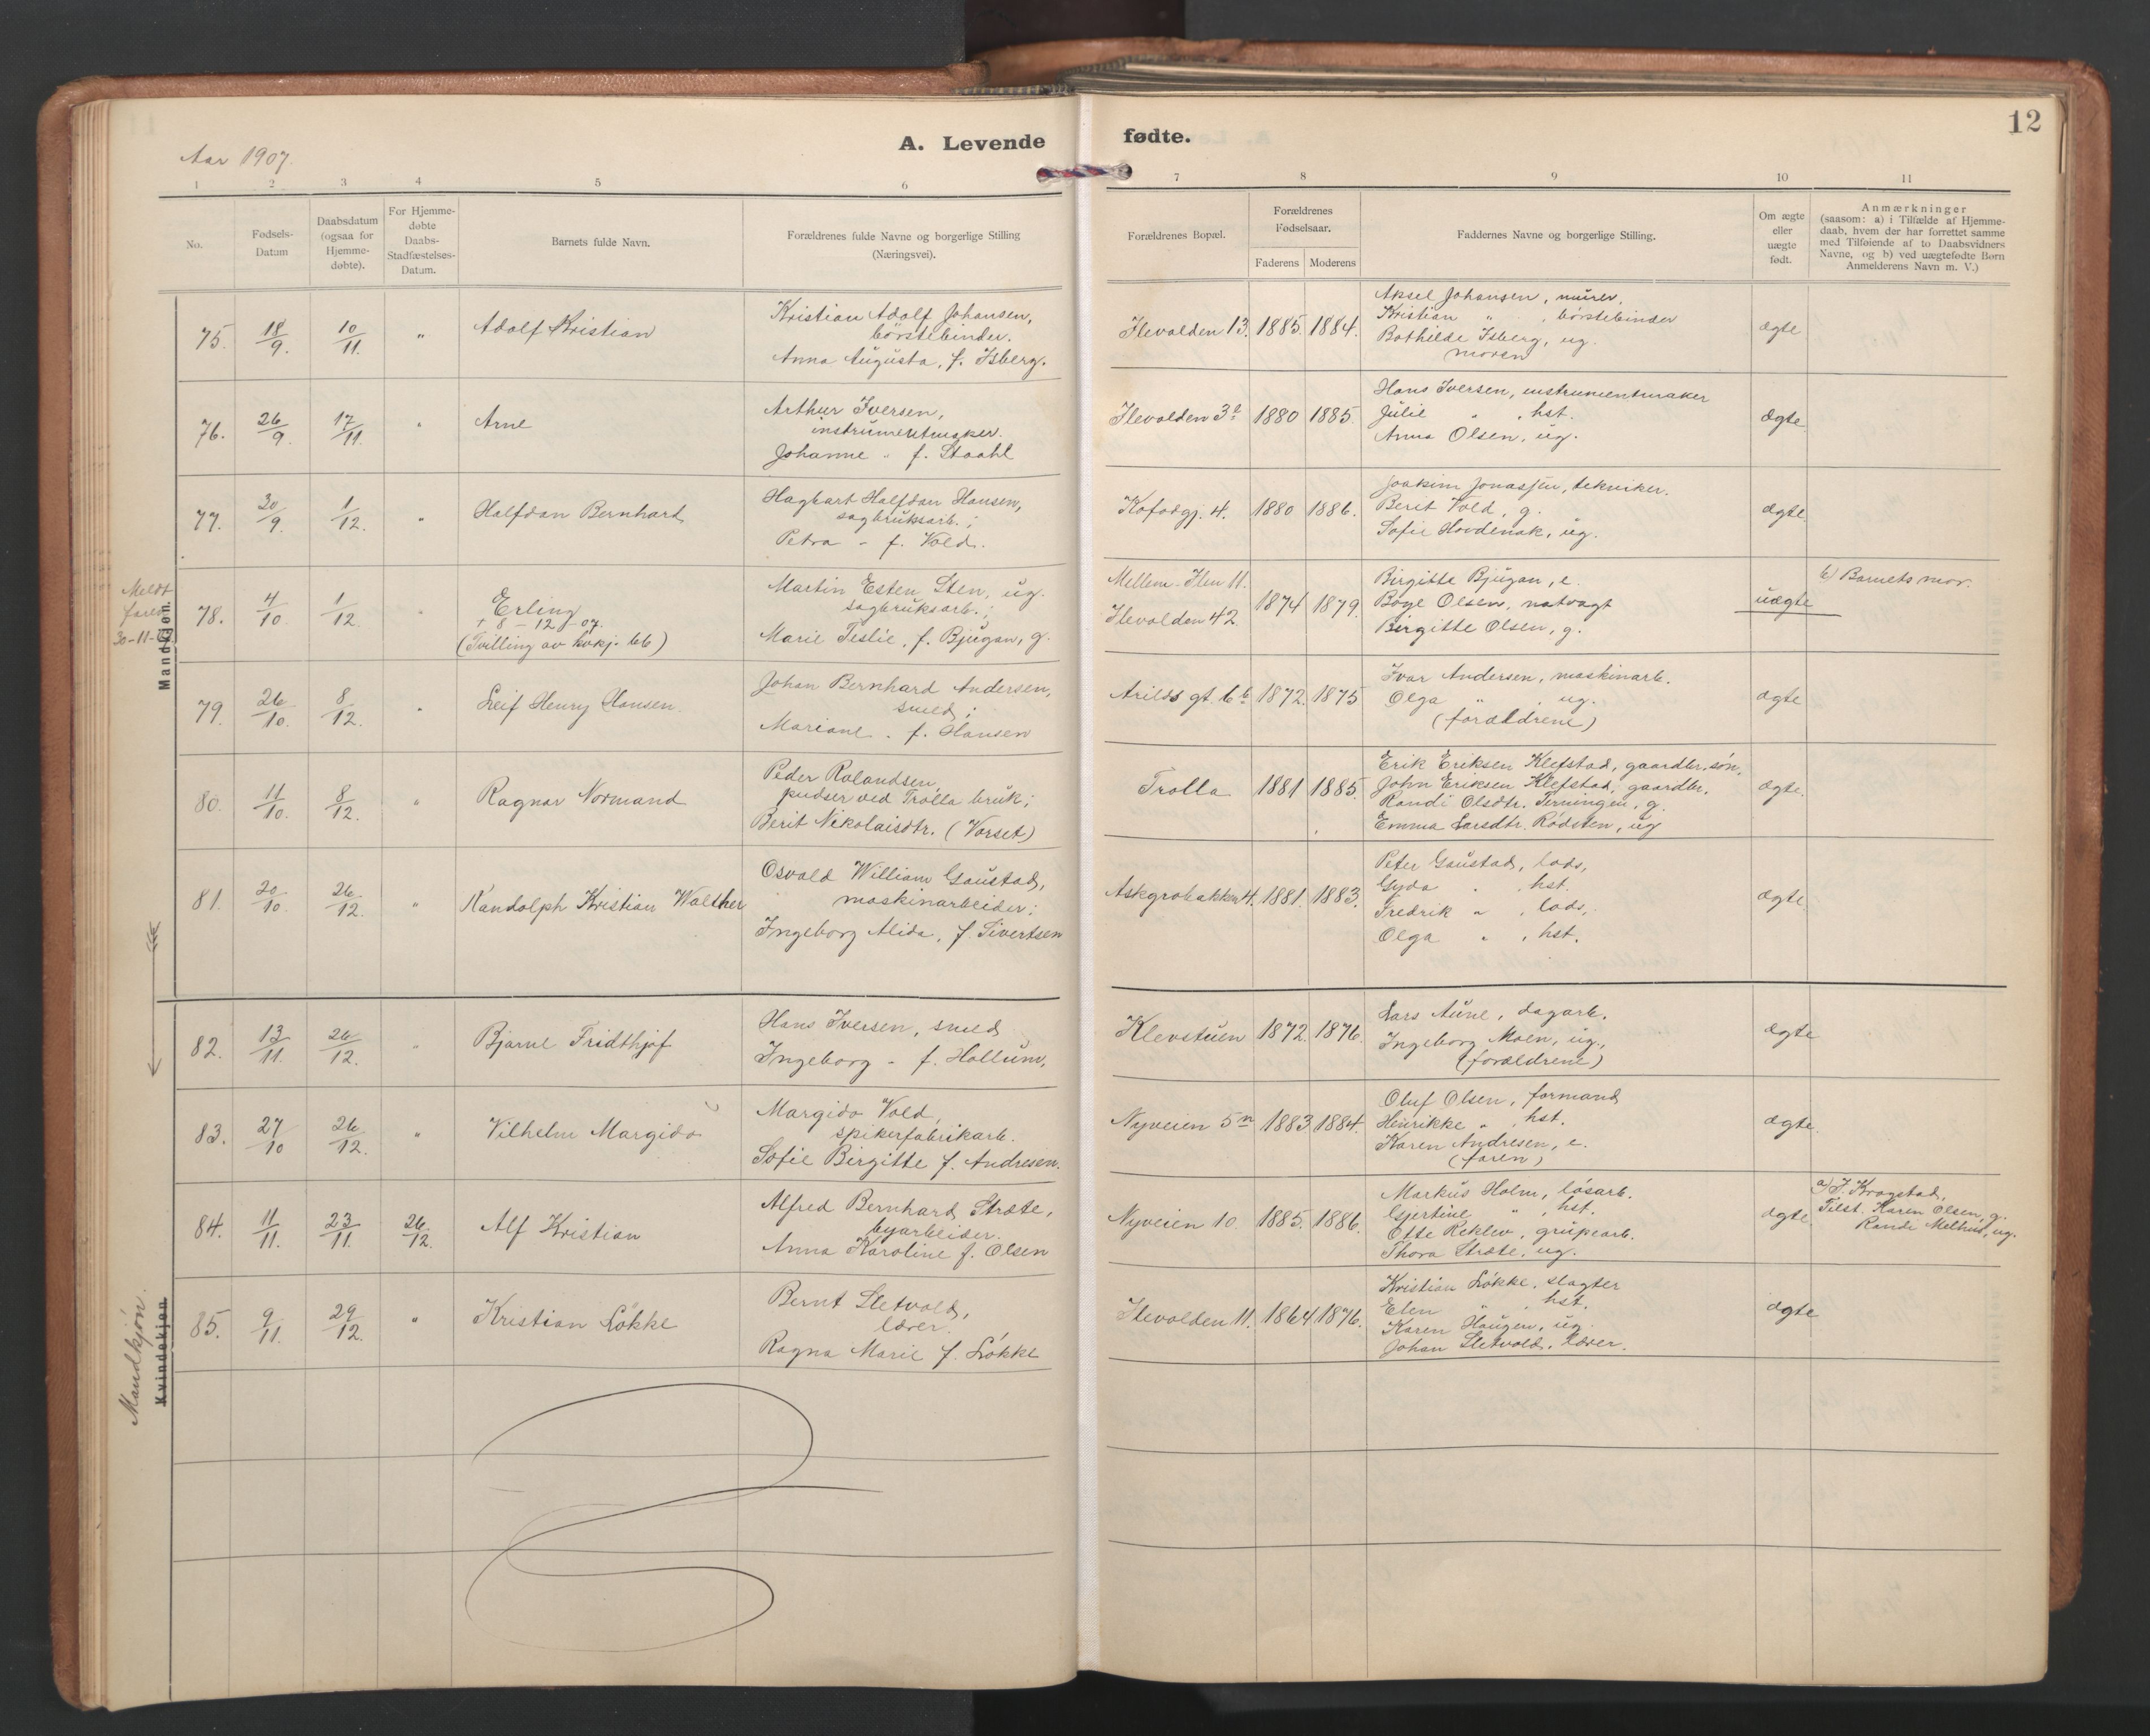 A. Levende fødte.
12
Aar 1907.
1 2 3 4 5 6 7 8 9 10 11
No.
Fødsels-
Datum
Daabsdatum
(ogsaa for
Hjemme-
døbte).
For Hjemme-
døbte
Daabs-
Stadfæstelses-
Datum.
Barnets fulde Navn.
Forældrenes fulde Navne og borgerlige Stilling
(Næringsvei).
Forældrenes Bopæl.
Forældrenes
Fødselsaar.
Faderens Moderens
Faddernes Navne og borgerlige Stilling.
Om ægte
eller
uægte
født.
Anmærkninger
(saasom: a) i Tilfælde af Hjemme-
daab, hvem der har forrettet samme
med Tilføiende af to Daabsvidners
Navne, og b) ved uægtefødte Børn
Anmelderens Navn m. V.)
Mandkjøn.
75. 18/9. 10/11. " Adolf Kristian
Kristian Adolf Johansen,
børstebinder.
Anna Augusta, f. Isberg.
Ilevolden 13. 1885. 1884.
Aksel Johansen, murer,
Kristian " , børstebinder
Bothilde Isberg, ug.
moren
ægte
76. 26/9. 17/11. " Arne
Arthur Iversen,
instrumentmaker.
Johanne " f. Staahl
Ilevolden 3 1880 1885
Hans Iversen, instrumentmaker
Julie " , hst.
Anna Olsen, ug.
ægte
77. 30/9. 1/12. " Halfdan Bernhard
Hagbart Halfdan Hansen,
sagbruksarb.;
Petra - f. Vold.
Kofodgj. 4. 1880 1886.
Joakim Jonassen, tekniker.
Berit Vold, g.
Sofie Hovdenak, ug.
ægte
Meldt
faren
30-11-
78. 4/10. 1/12. " Erling
+ 8 - 12 - 07.
(Tvilling av kvkj. 66)
Martin Esten Sten, ug.
sagbruksarb.;
Marie Teslie, f. Bjugan, g.
Mellem-Ilen 11.
Ilevolden 42 1874 1879.
Birgitte Bjugan, e.
Boye Olsen, natvagt
Birgitte Olsen, g.
uægte
b) Barnets mor.
79. 26/10. 8/12. " Leif Henry Hansen.
Johan Bernhard Andersen,
smed;
Mariane - f. Hansen
Arilds gt. 6b 1872. 1875
Ivar Andersen, maskinarb.
Olga " , ug.
(forældrene)
ægte
80. 11/10. 8/12. " Ragnar Normand
Peder Rolandsen,
pudser ved Trolla bruk;
Berit Nekolaisdtr. (Vorset)
Trolla 1881 1885.
Erik Eriksen Klefstad, gaardbr. søn,
John Eriksen Klefstad, gaardbr.
Randi Olsdtr. Terningen, g.
Emma Larsdtr. Rødsten, ug
ægte.
81. 20/10. 26/12. " Randolph Kristian Walther
Osvald William Gaustad,
maskinarbeider;
Ingeborg Alida, f. Sivertsen
Askgrobakken 4. 1881. 1883.
Peter Gaustad, lods,
Gyda " , hst.
Fredrik " , lods,
Olga " , hst.
ægte.
82. 13/11. 26/12. " Bjarne Fridthjof
Hans Iversen, smed
Ingeborg - f. Hollum,
Klevstuen 1872. 1876.
Lars Aune, dagarb.
Ingeborg Moen, ug.,
(forældrene)
ægte
83. 27/10 26/12. " Vilhelm Margido
Margido Vold,
spikerfabrikarb.
Sofie Birgitte f. Andresen.
Nyveien 5n 1883 1884.
Oluf Olsen, formand
Henrikke " , hst.
Karen Andresen, e.
(faren)
ægte.
84. 11/11. 23/11. 26/12. Alf Kristian
Alfred Bernhard Stræte,
byarbeider.
Anna Karoline f. Olsen
Nyveien 10. 1885. 1886.
Markus Holm, løsarb.
Gjertine " , hst.
Otte Reklev, grubearb.
Thora Stræte, ug.
ægte.
a) J. Krogstad,
Tilst. Karen Olsen, g.
Randi Melhus, ug.
85. 9/11. 29/12. " Kristian Løkke
Bernt Sletvold,
lærer.
Ragna Marie f. Løkke
Ilevolden 11. 1864 1876.
Kristian Løkke, slagter
Elen " , hst.
Karen Haugen, ug.
Johan Sletvold, lærer.
ægte
Mandkjøn.
Kvindekjøn